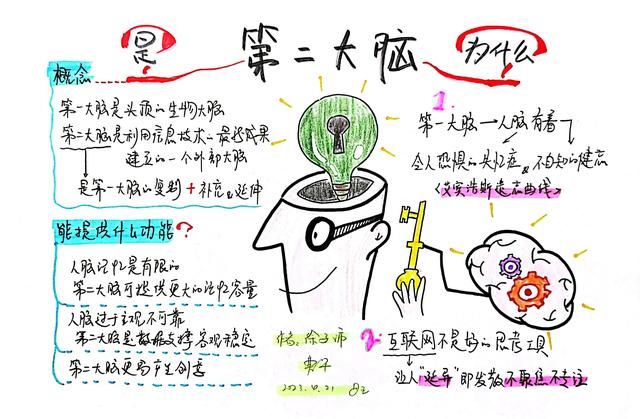 是
第二大脑
为什么
概念
第一大脑是头顶的生物大脑
第二大脑是利用信息技术的最好成果
建立的一个外部大脑
是第一大脑的复制+补充&延伸
能提供什么功能?
人脑记忆是有限的
第二大脑可提供更大的记忆容量
人脑过于主观不可靠
第二大脑是数据支撑客观稳定
第二大脑更易产生创意
1.
第一大脑→人脑有着
令人恐惧的失忆症&不自知的健忘
《艾宾浩斯遗忘曲线》
2.
互联网不是好的思考工具
让人"延异"即发散不聚焦不专注